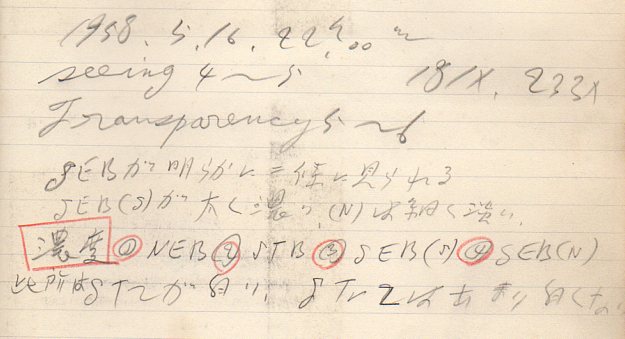 1958. 5. 16. 22h00m
seeing 4~5 181X, 233X
Transparency 5~6
SEBが明らかに二條に見られる
SEB(S)が太く濃い, (N)は細く淡い.
濃度 ① NEB ② STB ③ SEB(S) ④ SEB(N)
STZが白い, Zはあまり白くない